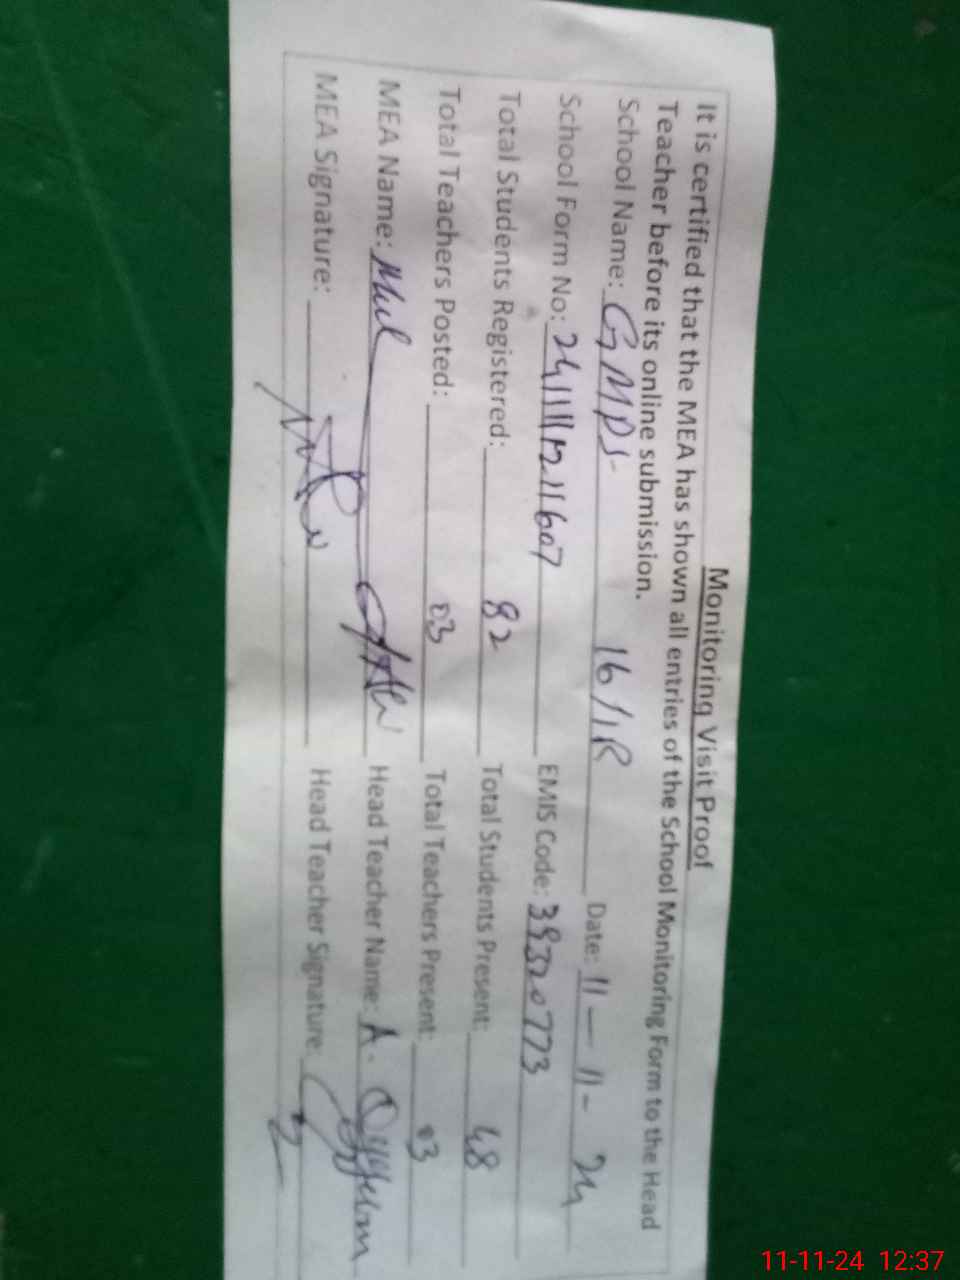 Monitoring Visit Proof
It is certified that the MEA has shown all entries of the School Monitoring Form to the Head
Teacher before its online submission.
School Name: GMPS 16/1R Date: 11-11-24
School Form No: EMIS Code: 39320773
Total Students Registered: 82 Total Students Present: 48
Total Teachers Posted: 03 Total Teachers Present: 03
MEA Name: Head Teacher Name: A. Qayyum
MEA Signature: Head Teacher Signature:
11-11-24 12:37